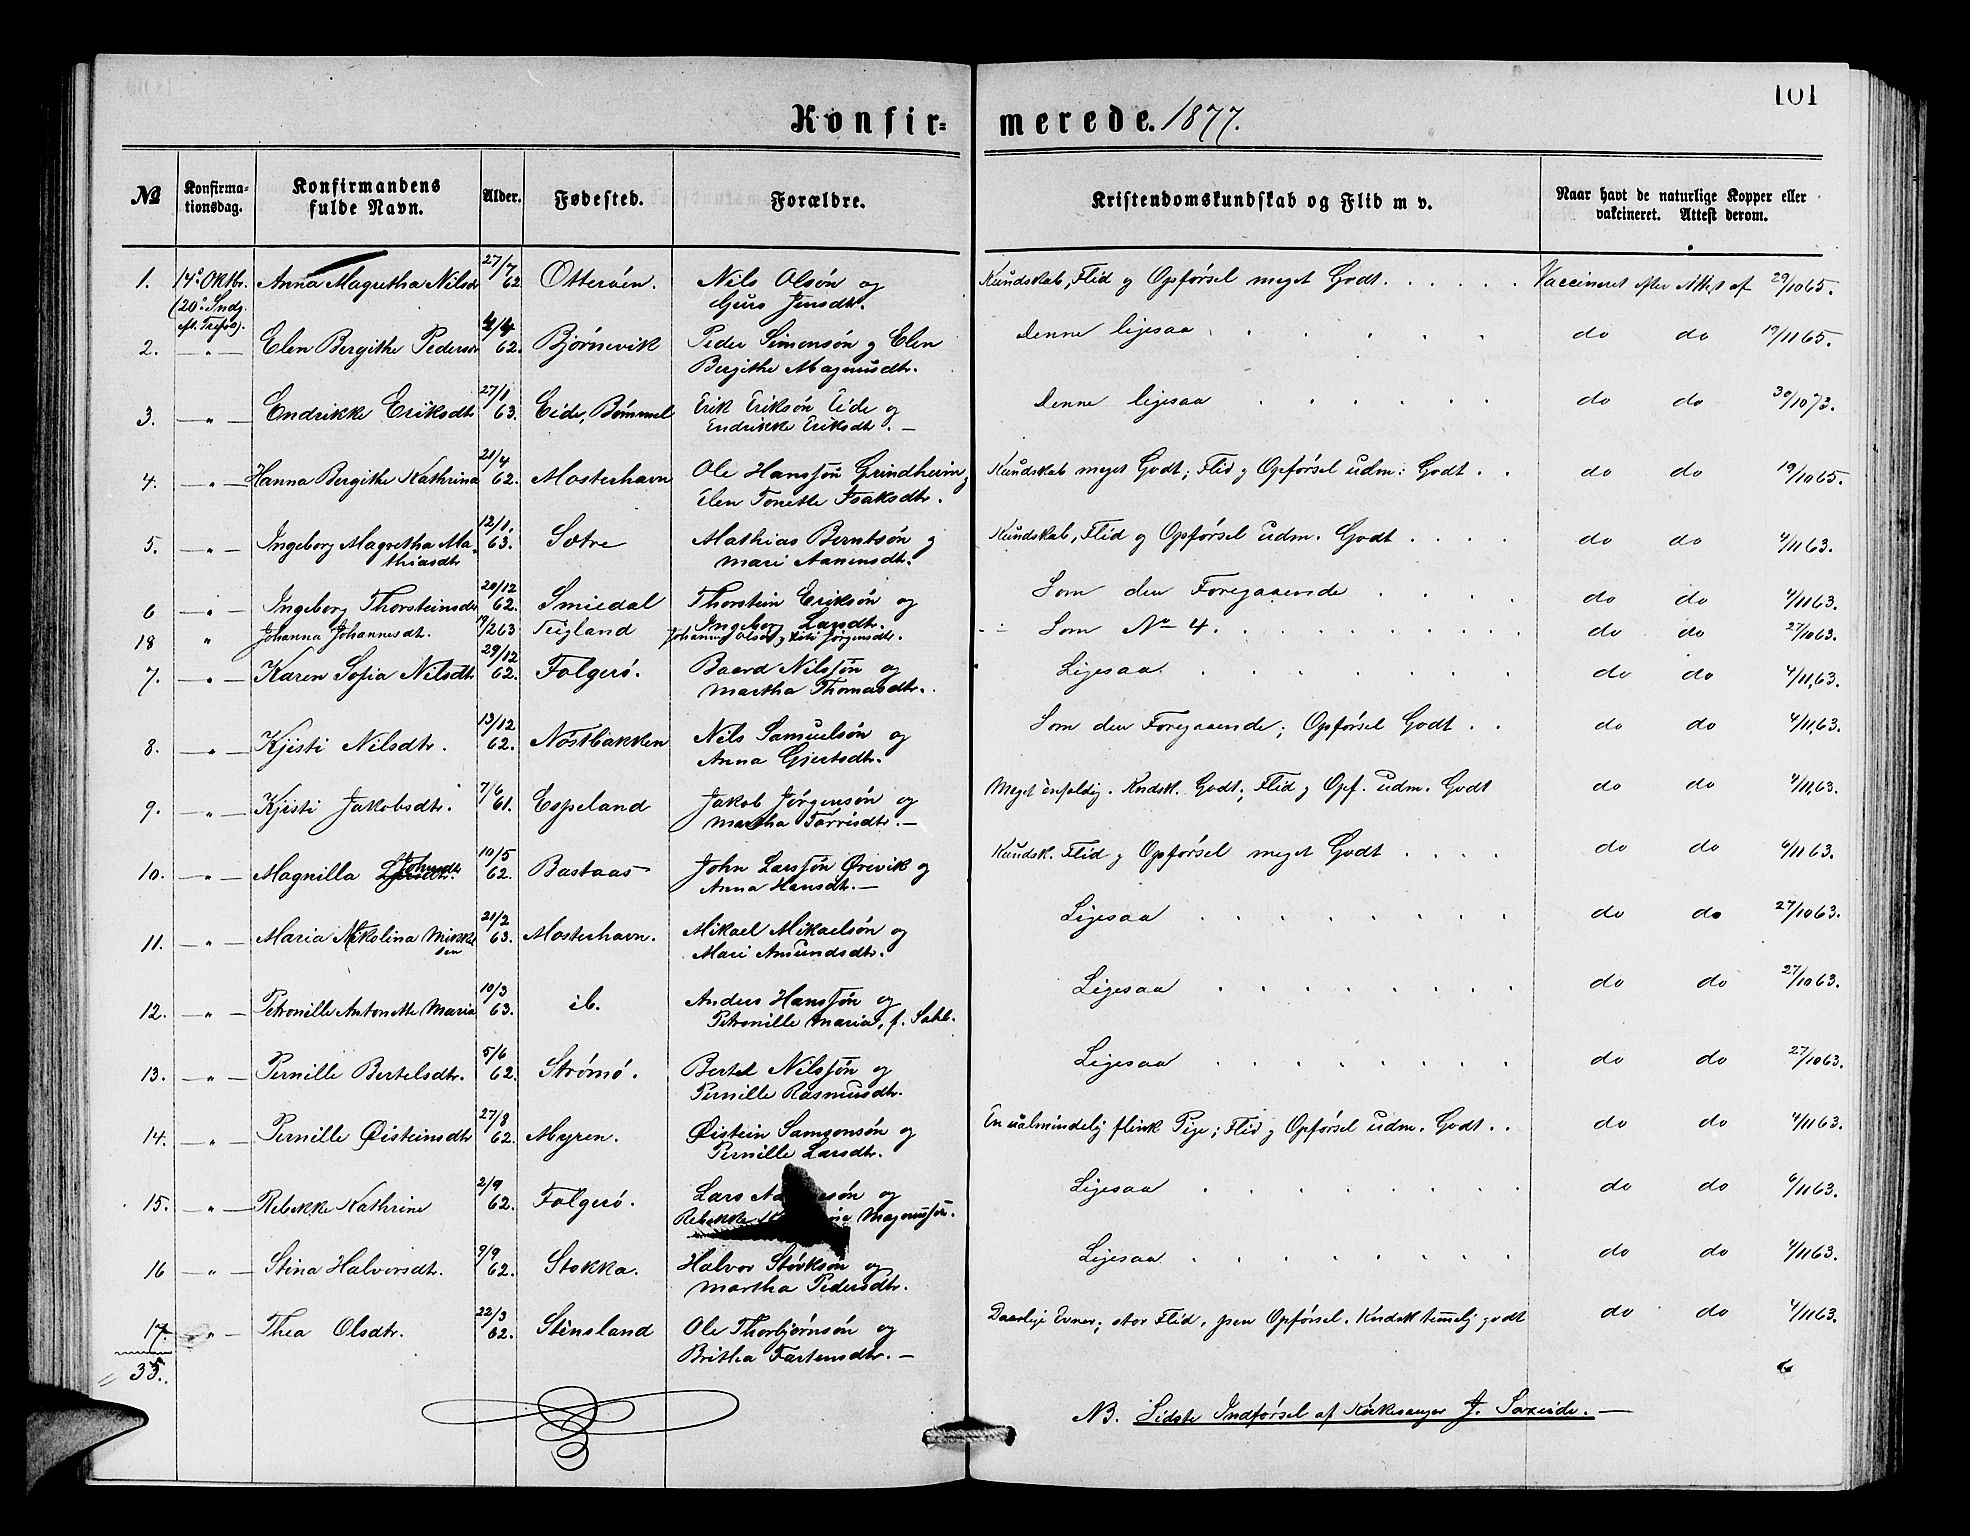 101
Konfirmerede. 1877.
№ Konfirmationsdag. Konfirmandens fulde Navn. Alder. Fødested. Forældre. Kristendomskundskab og Flid m v. Naar havt de naturlige Kopper eller vakcineret. Attest derom.
1. 14de Oktbr. (20de Sndg. eft. Trefos). Anna Magretha Nilsdr 27/7 62 Otterøen. Nils Olsøn og Guro Jensdtr. Kundskab, Flid og Opførsel meget Godt. Vaccineret efter Attest af 29/10 65.
2. — " — Elen Bergithe Pedersdr 4/4 62. Bjørnevik Peder Simonsøn og Elen Bergithe Magnusdtr. Denne ligesaa do do 19/11 65.
3. — " — Endrikke Eriksdtr 27/1 63. Eide, Bømmel Erik Eriksøn Eide og Endrikke Eriksdtr. — Denne ligesaa do do 30/10 73.
4. — " — Hanna Bergithe Kathrina 21/4 62. Mosterhavn Ole Hanssøn Grindheim og Elen Tonette Isaksdtr. Kundskab meget Godt; Flid og Opførsel udm: Godt do do 19/10 65.
5. — " — Ingeborg Magretha Mathiasdtr 12/1. 63. Sætre Mathias Berntsøn og Mari Aanensdtr. Kundskab, Flid og Opførsel udm. Godt do do 4/11 63.
6 — " — Ingeborg Thorsteinsdr 20/12 62. Smiedal Thorstein Eriksøn og Ingeborg Larsdtr. Som den Foregaaende do do 4/11 63.
18 " Johanna Johannesdt. /2 63 Teigland Johannes Olsøn og Siri Jørgensdtr. Som No 4. do do 27/10 63.
7. — " — Karen Sofia Nilsdtr 29/12 62. Folgerø. Baard Nilssøn og Martha Thomasdtr. Ligesaa do do 4/11, 63.
8. — " — Kjisti Nilsdtr. 13/12 62. Nøstbakken Nils Samuelsøn og Anna Gjertsdtr. Som den Foregaaende; Opførsel Godt do do 4/11, 63.
9. — " — Kjisti Jakobsdtr. 7/6 61. Espeland Jakob Jørgensøn og Martha Torrisdtr. — Meget enfoldig. Kndsk. Godt; Flid og Opf. udm. Godt do do 4/11, 63.
10. — " — Magnilla Johnsdtr. 10/5 62. Bastaas John Larssøn Ørevik og Anna Hansdtr. — Kundsk. Flid og Opførsel meget Godt do do 6/11 63.
11. — " — Maria Nikolina 21/2 63. Mosterhavn. Mikael Mikaelsøn og Mari Amundsdtr. Ligesaa do do 27/10 63.
12. — " — Petronille Antonette Maria 10/3 63. ib. Anders Hanssøn og Petronille Maria, f. Dahl. Ligesaa do do 27/10 63.
13. — " — Pernille Bertelsdtr. 5/6 62. Strømø. Bertel Nilssøn og Pernille Rasmusdtr. Ligesaa do do 27/10 63.
14. — " — Pernille Øisteinsdtr 27/8 62. Myren. Øistein Samsonsøn og Pernille Larsdtr. En ualmindelig flink Pige; Flid og Opførsel udm. Godt do do 4/11 63.
15. — " — Rebekke Kathrine 2/9 62. Folgerø. Lars og Rebekke Magnussen. Ligesaa do do 6/11 63.
16 — " — Stina Halvorsdtr. 9/9 62. Stokka. Halvor Størksøn og Martha Pedersdtr. Ligesaa do do 4/11 63.
17. " — Thea Olsdtr. 22/3 62. Stensland Ole Thorbjørnsøn og Britha Tostensdtr. — Daarlige Evner; stor Flid, pen Opførsel. Kndsk temmelig godt do do 4/11 63.
35.
NB. Sidste Indførsel af Kirkesanger J. Søreide. —